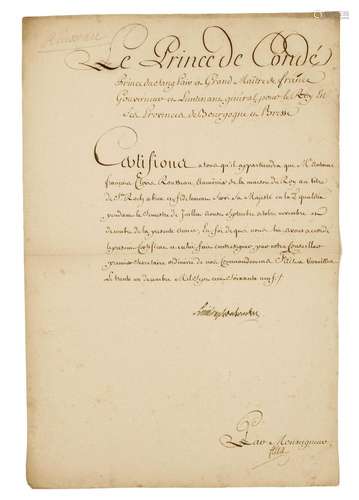 Le Prince de Condé
Prince du Sang Pair et Grand Maître de france
Gouverneur et Lieutenant général pour le Roy en
Ses Provinces de Bourgogne et Bresse
Certifions a tous qu'il appartiendra que Mr. Antoine
françois Rousseau de la maison du Roy au titre
de St. Roch a Servi Sa Majesté en la d. qualité
pendant le Semestre de Juillet Aoust Septembre octobre novembre et
decembre de la presente Année, En foi de quoi nous lui avons accordé
le present Certificat et icelui fait contresigner par notre Conseiller
premier Secretaire ordinaire de nos Commandemens fait a Versailles
Le trente un decembre Mil Sept cent Soixante
Par Monseigneur